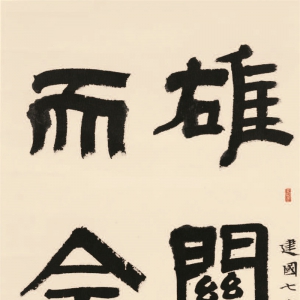 建國七
雄關
而今